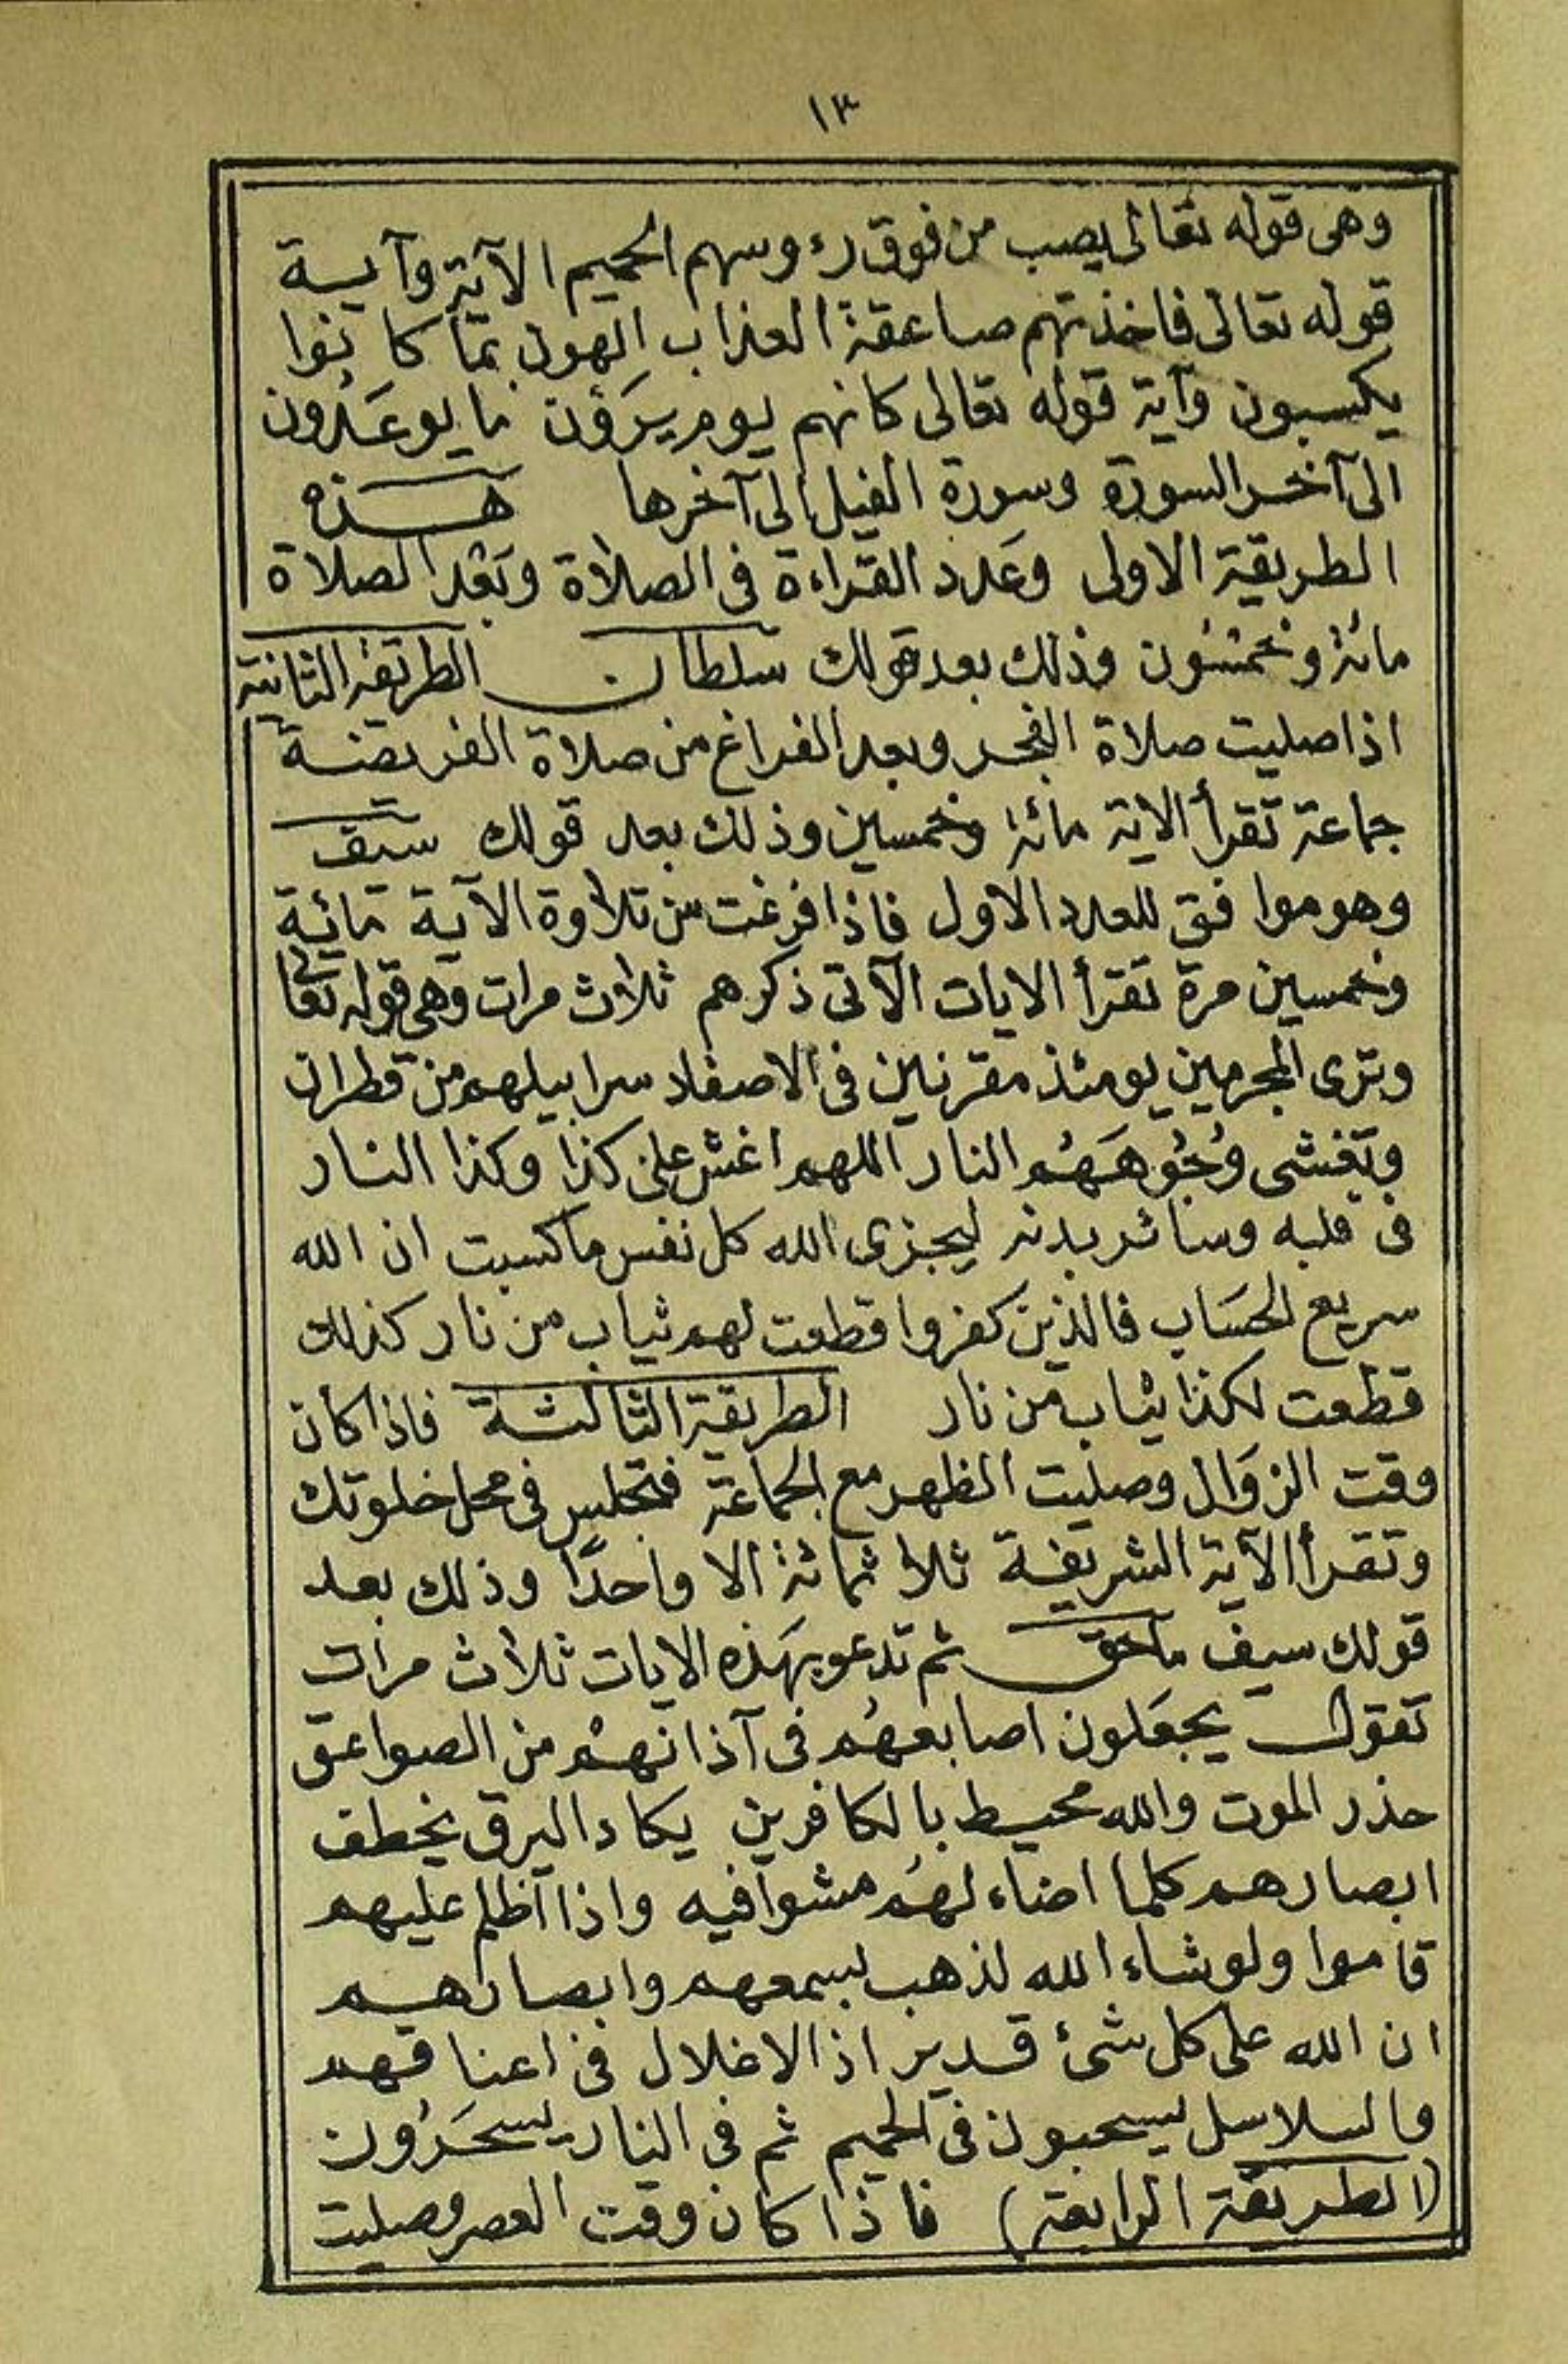 ١٣
وهى قوله تعالى يصب من فوق رءوسهم الحميم الآية وآيـــة
قوله تعالى فاخذتهم صاعقة العذاب الهون بما كانوا
يكسبون وآية قوله تعالى كانهم يوم يرَوْن ما يوعَدُون
الى آخر السورة وسورة الفيل الى آخرها هــذه
الطريقة الاولى وعَدد القراءة فى الصلاة وبَعْد الصلاة
مائة وخمسُون وذلك بعد قولك سلطان الطريقة الثانية
اذا صليت صلاة الفجر وبعد الفراغ من صلاة الفريضة
جماعة تقرأ الاية مائة وخمسين وذلك بعد قولك سيف
وهو موافق للعدد الاول فاذا فرغت من تلاوة الآية مائية
وخمسين مرة تقرأ الايات الآتى ذكرهم ثلاث مرات وهى قوله تعالى
وترى المجرمين يومئذ مقرنين فى الاصفاد سرابيلهم من قطران
وتغشى وُجُوهَهُم النار اللهم اغش على كذا وكذا النار
فى قلبه وسائر بدنه ليجزى الله كل نفس ما كسبت ان الله
سريع الحسَاب فالذين كفروا قطعت لهم ثياب من نار كذلك
قطعت لكذا ثياب من نار الطريقة الثالثة فاذا كان
وقت الزوَال وصليت الظهر مع الجماعة فتجلس فى محل خلوتك
وتقرأ الآية الشريفة ثلاثمائة الا واحدًا وذلك بعد
قولك سيف ماحق ثم تدعو بهَذه الايات ثلاث مرات
تقول يجعَلون اصابعهُم فى آذانهمْ من الصواعق
حذر الموت والله محيط بالكافرين يكاد البرق يخطف
ابصارهم كلما اضاء لهُم مشوا فيه واذا اظلم عليهم
قاموا ولو شاء الله لذهب بسمعهم وابصارهم
ان الله على كل شئ قدير اذ الاغلال فى اعناقهم
والسلاسل يسحبون فى الحميم ثم فى النار يسحَرُون
(الطريقة الرابعة) فاذا كان وقت العصر وصليت